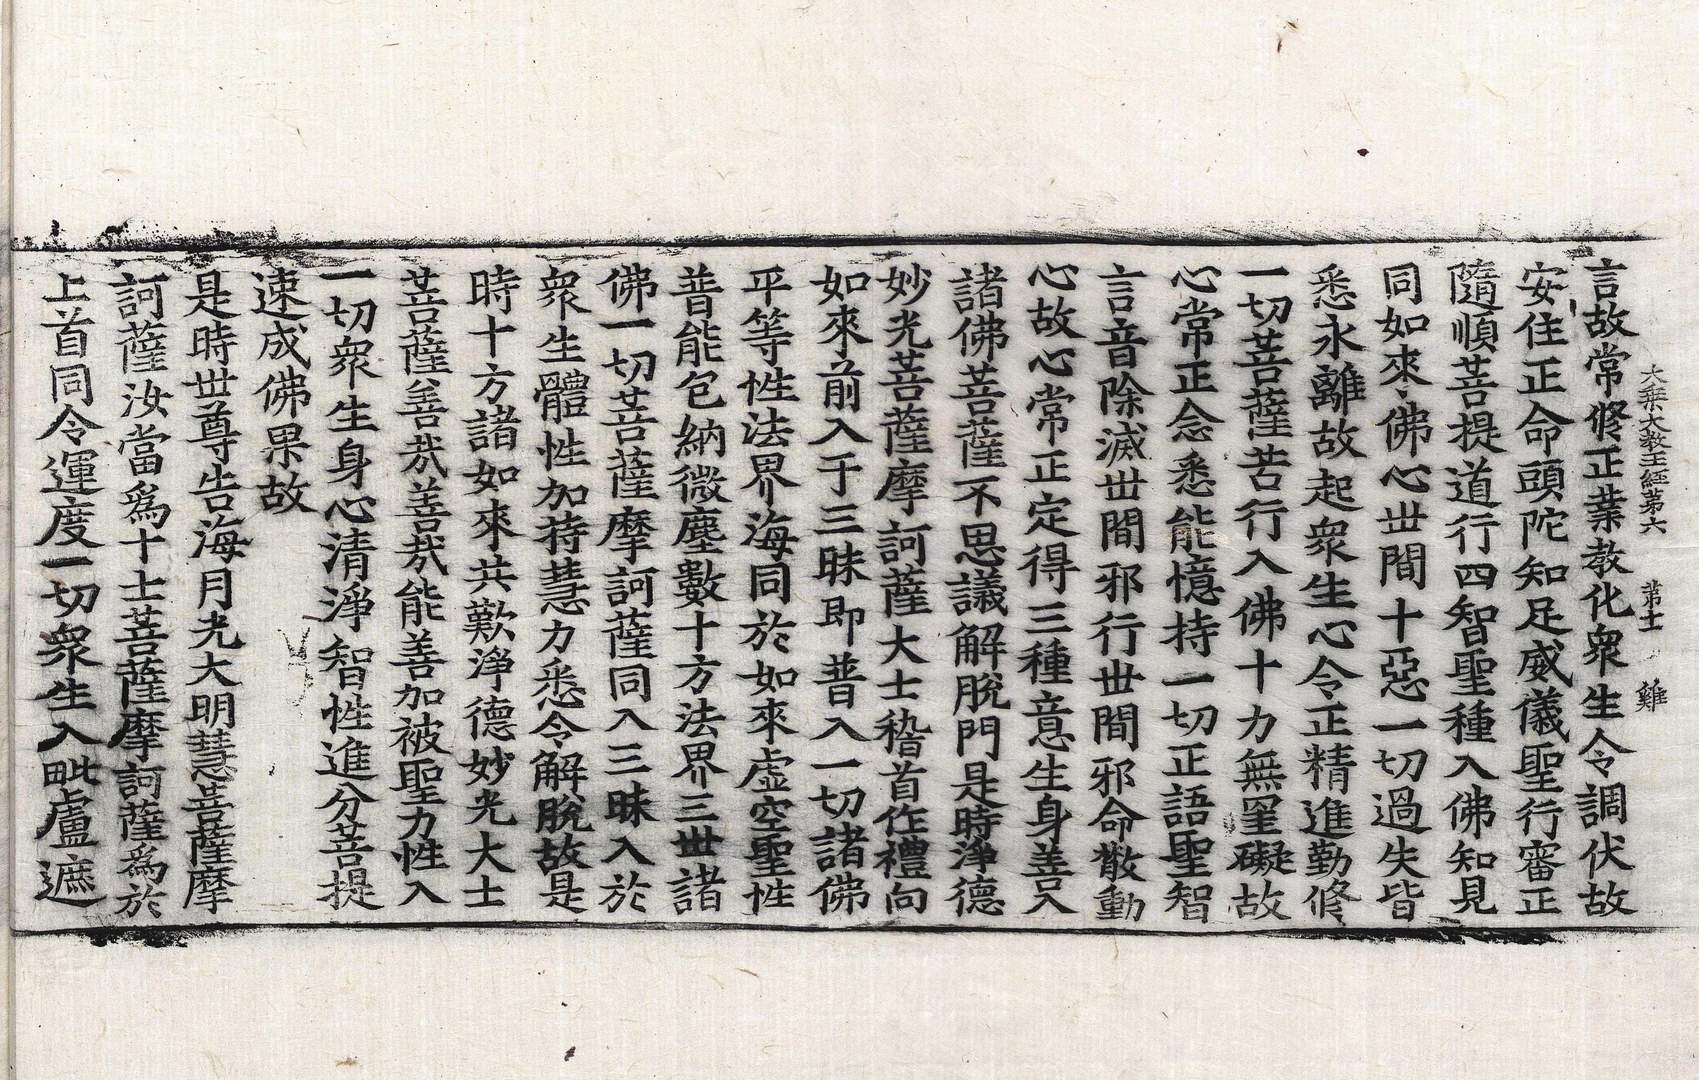 大乗大教王經第六　第十一　雞
言故常修正業教化衆生令調伏故
安住正命頭陀知足威儀聖行審正
隨順菩提道行四智聖種入佛知見
同如來佛心世間十惡一切過失皆
悉永離故起衆生心令正精進勤修
一切菩薩苦行入佛十力無罣礙故
心常正念悉能憶持一切正語聖智
言音除滅世間邪行世間邪命散動
心故心常正定得三種意生身善入
諸佛菩薩不思議解脫門是時淨德
妙光菩薩摩訶薩大士稽首作禮向
如來前入于三昧即普入一切諸佛
平等性法界海同於如來虛空聖性
普能包納微塵數十方法界三世諸
佛一切菩薩摩訶薩同入三昧入於
衆生體性加持慧力悉令解脫故是
時十方諸如來共歎淨德妙光大士
菩薩善哉善哉能善加被聖力性入
一切衆生身心清淨智性進分菩提
速成佛果故
是時世尊告海月光大明慧菩薩摩
訶薩汝當爲十士菩薩摩訶薩爲於
上首同令運度一切衆生入毗盧遮